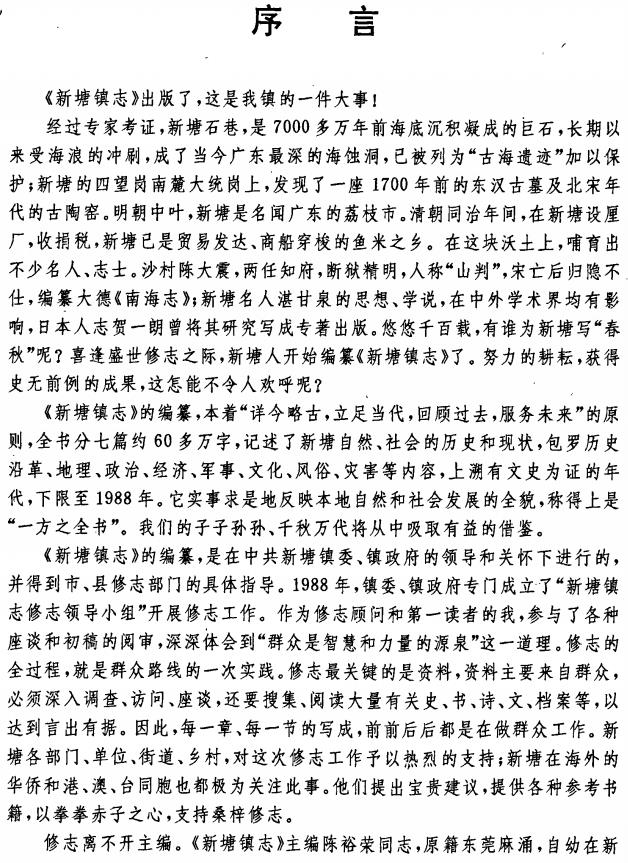 序 言
《新塘镇志》出版了,这是我镇的一件大事!
经过专家考证,新塘石巷,是 7000 多万年前海底沉积凝成的巨石,长期以
来受海浪的冲刷,成了当今广东最深的海蚀洞,已被列为“古海遗迹”加以保
护;新塘的四望岗南麓大统岗上,发现了一座 1700 年前的东汉古墓及北宋年
代的古陶窑。明朝中叶,新塘是名闻广东的荔枝市。清朝同治年间,在新塘设厘
厂,收捐税,新塘已是贸易发达、商船穿梭的鱼米之乡。在这块沃土上,哺育出
不少名人、志士。沙村陈大震,两任知府,断狱精明,人称“山判”,宋亡后归隐不
仕,编纂大德《南海志》;新塘名人湛甘泉的思想、学说,在中外学术界均有影
响,日本人志贺一朗曾将其研究写成专著出版。悠悠千百载,有谁为新塘写“春
秋”呢?喜逢盛世修志之际,新塘人开始编纂《新塘镇志》了。努力的耕耘,获得
史无前例的成果,这怎能不令人欢呼呢?
《新塘镇志》的编纂,本着“详今略古,立足当代,回顾过去,服务未来”的原
则,全书分七篇约 60 多万字,记述了新塘自然、社会的历史和现状,包罗历史
沿革、地理、政治、经济、军事、文化、风俗、灾害等内容,上溯有文史为证的年
代,下限至 1988 年。它实事求是地反映本地自然和社会发展的全貌,称得上是
“一方之全书”。我们的子子孙孙、千秋万代将从中吸取有益的借鉴。
《新塘镇志》的编纂,是在中共新塘镇委、镇政府的领导和关怀下进行的,
并得到市、县修志部门的具体指导。1988 年,镇委、镇政府专门成立了“新塘镇
志修志领导小组”开展修志工作。作为修志顾问和第一读者的我,参与了各种
座谈和初稿的阅审,深深体会到“群众是智慧和力量的源泉”这一道理。修志的
全过程,就是群众路线的一次实践。修志最关键的是资料,资料主要来自群众,
必须深入调查、访问、座谈,还要搜集、阅读大量有关史、书、诗、文、档案等,以
达到言出有据。因此,每一章、每一节的写成,前前后后都是在做群众工作。新
塘各部门、单位、街道、乡村,对这次修志工作予以热烈的支持;新塘在海外的
华侨和港、澳、台同胞也都极为关注此事。他们提出宝贵建议,提供各种参考书
籍,以拳拳赤子之心,支持桑梓修志。
修志离不开主编。《新塘镇志》主编陈裕荣同志,原籍东莞麻涌,自幼在新